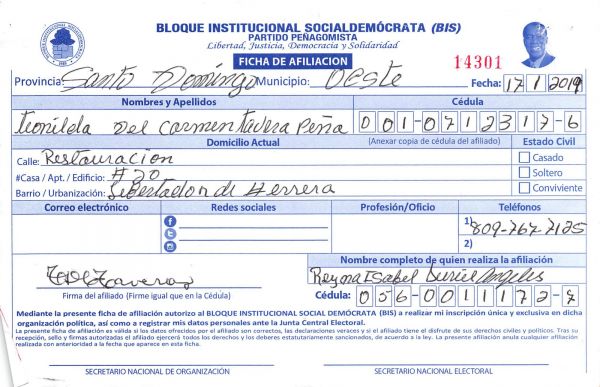 BLOQUE INSTITUCIONAL SOCIALDEMÓCRATA (BIS)
PARTIDO PEÑAGOMISTA
Libertad, Justicia, Democracia y Solidaridad
FICHA DE AFILIACION
14301
Provincia: Santo Domingo Municipio: Oeste Fecha: 17/1/2019
Nombres y Apellidos Cédula
Teonilda Del Carmen Tavera Peña 001-0712317-6
Domicilio Actual (Anexar copia de cédula del afiliado) Estado Civil
Calle: Restauracion Casado
#Casa / Apt. / Edificio: #20 Soltero
Barrio / Urbanización: Libertador de Herrera Conviviente
Correo electrónico Redes sociales Profesión/Oficio Teléfonos
1) 809-767-7125
2)
Nombre completo de quien realiza la afiliación
Reyna Isabel Angeles
Firma del afiliado (Firme igual que en la Cédula) Cédula: 056-0011172-
Mediante la presente ficha de afiliación autorizo al BLOQUE INSTITUCIONAL SOCIAL DEMÓCRATA (BIS) a realizar mi inscripción única y exclusiva en dicha
organización política, así como a registrar mis datos personales ante la Junta Central Electoral.
La presente ficha de afiliación es válida y los datos ofrecidos por el afiliado son correctas, las declaraciones veraces y si el afiliado tiene el disfrute de sus derechos civiles y políticos. Tras su
recepción, sello y firmas autorizadas el afiliado ejercerá todos los derechos y los deberes estatutariamente sancionados, de acuerdo a la ley. La presente afiliación anula cualquier afiliación
realizada con anterioridad a la fecha que aparece en esta ficha.
SECRETARIO NACIONAL DE ORGANIZACIÓN SECRETARIO NACIONAL ELECTORAL